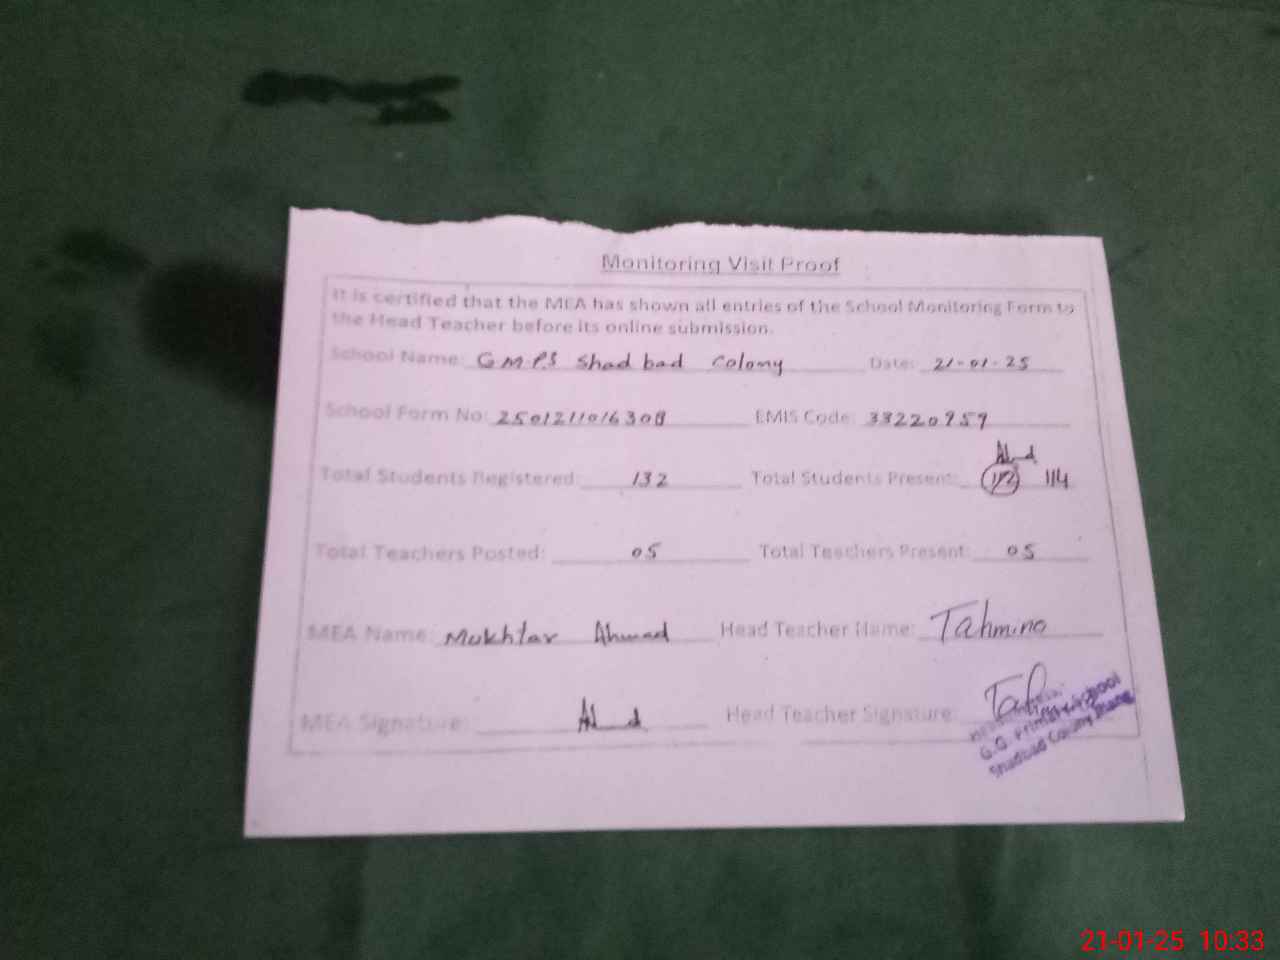 Monitoring Visit Proof
It is certified that the MEA has shown all entries of the School Monitoring Form to
the Head Teacher before its online submission.
School Name: G.M.P.S Shad bad Colony Date: 21-01-25
School Form No: 250121101630B EMIS Code: 33220959
Total Students Registered: 132 Total Students Present: 112 114
Total Teachers Posted: 05 Total Teachers Present: 05
MEA Name: Mukhtar Ahmad Head Teacher Name: Tahmina
MEA Signature: Head Teacher Signature:
G.G. Primary School
Shadbad Colony Jhang
21-01-25 10:33